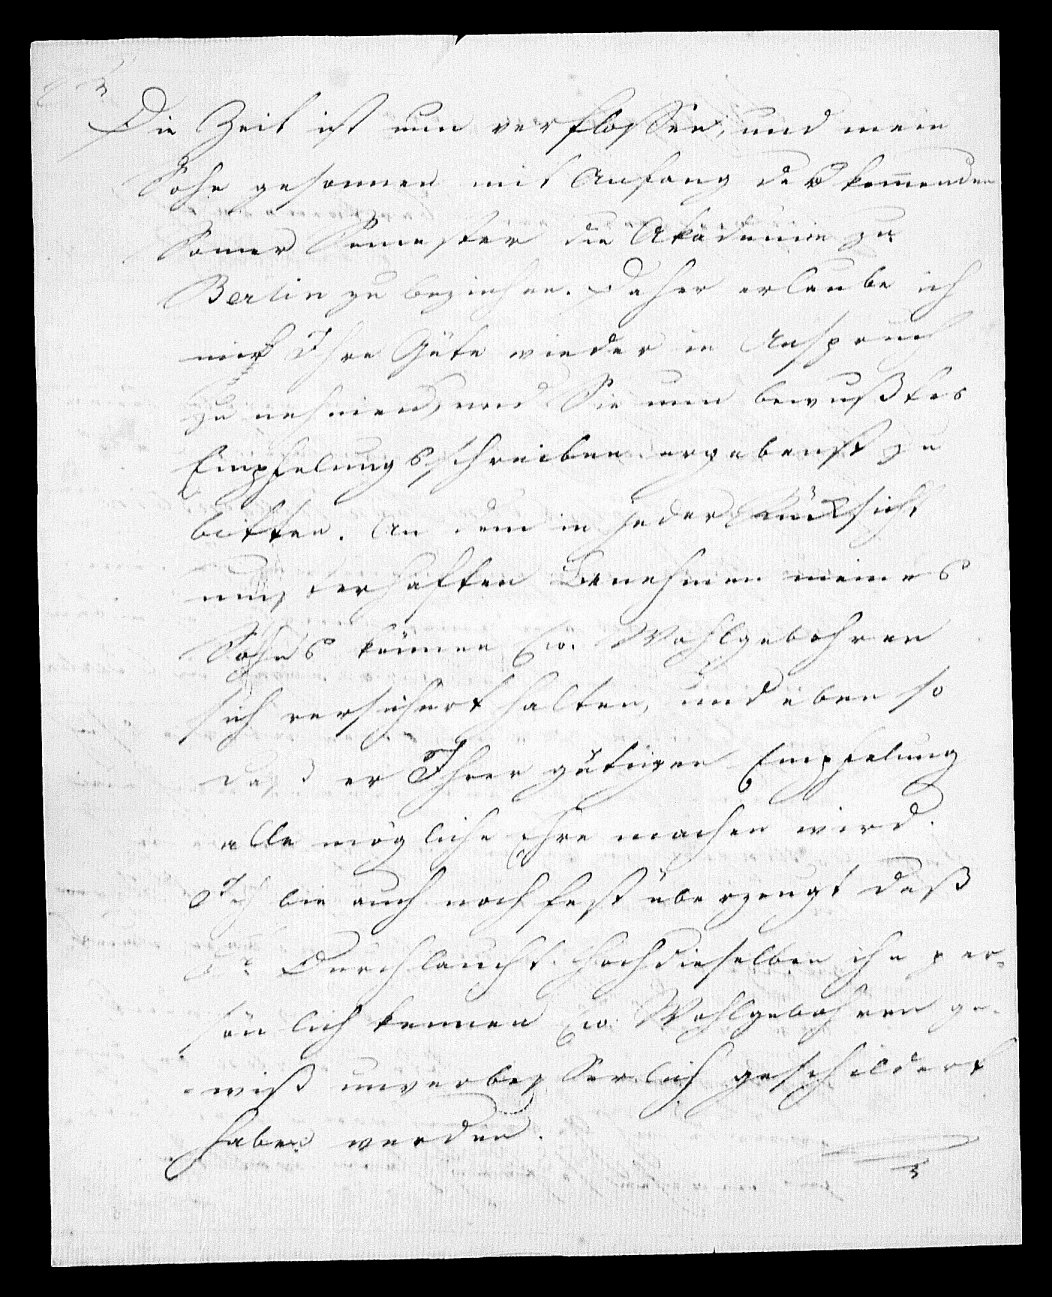 Die Zeit ist nun verflossen, und mein
Sohn gesonnen mit Anfang des kom̅enden
Somer Semester die Akademie zu
Berlin zu beziehen. Daher erlaube ich
mir Ihre Güte wieder in Anspruch
zu nehmen, und Sie um bewußtes
Empfelungsschreiben ergebenst zu
bitten. An dem in jeder Rücksicht
musterhaften Benehmen meines
Sohnes können Ew. Wohlgebohren
sich versichert halten, und eben so
daß er Ihrer gütigen Empfelung
alle mögliche Ehre machen wird.
Ich bin auch noch fest überzeugt daß
Sr Durchlaucht Hochdieselben ihn per-
sönlich kennen Ew. Wohlgebohren ge-
wiß unverbesserlich geschildert
haben werden.